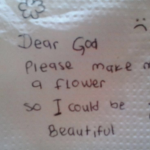 Dear God
Please make
a flower
so I could be
Beautiful